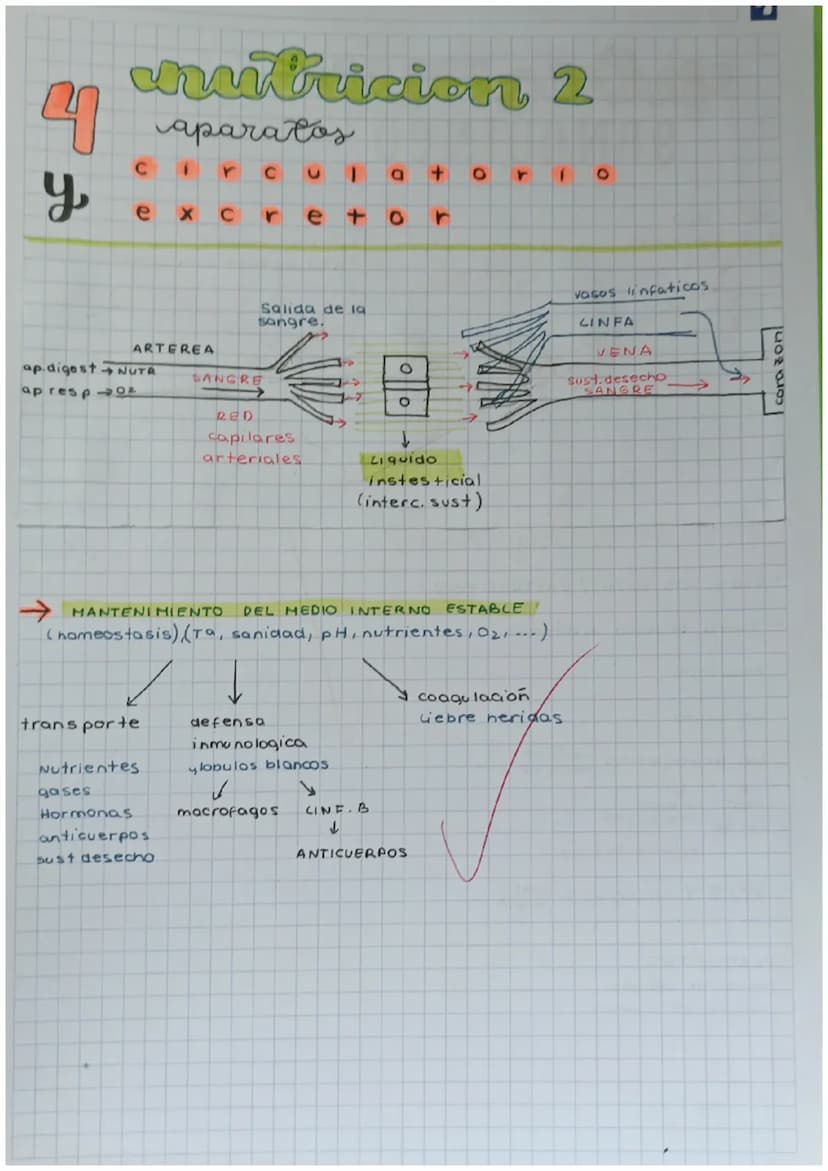 4
nutricion 2
aparatos
y
circulatorio
excretor
Salida de la
sangre.
vasos linfaticos
LINFA
ARTEREA
VENA
ap.digest → NUTR
ap resp → O2
SANGRE
sust.desecho
SANGRE
corazon
RED
capilares
arteriales
Liquido
instesticial
(interc. sust)
→ MANTENIMIENTO DEL MEDIO INTERNO ESTABLE
(homeostasis),(Tª, sanidad, pH, nutrientes, O2, ...)
transporte
Nutrientes
gases
Hormonas
anticuerpos
sust desecho
defensa
inmunologica
globulos blancos
macrofagos
LINF. B
ANTICUERPOS
coagulación
Liebre heridas